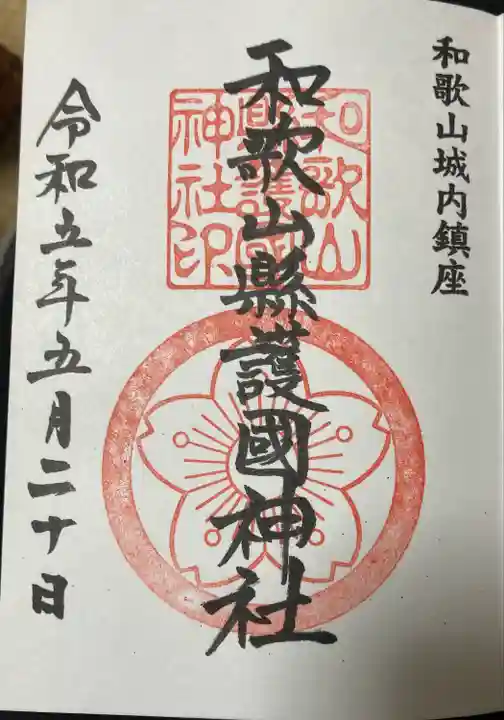 和歌山城内鎮座
和歌山縣護國神社
和歌山
縣護國
神社印
令和五年五月二十日